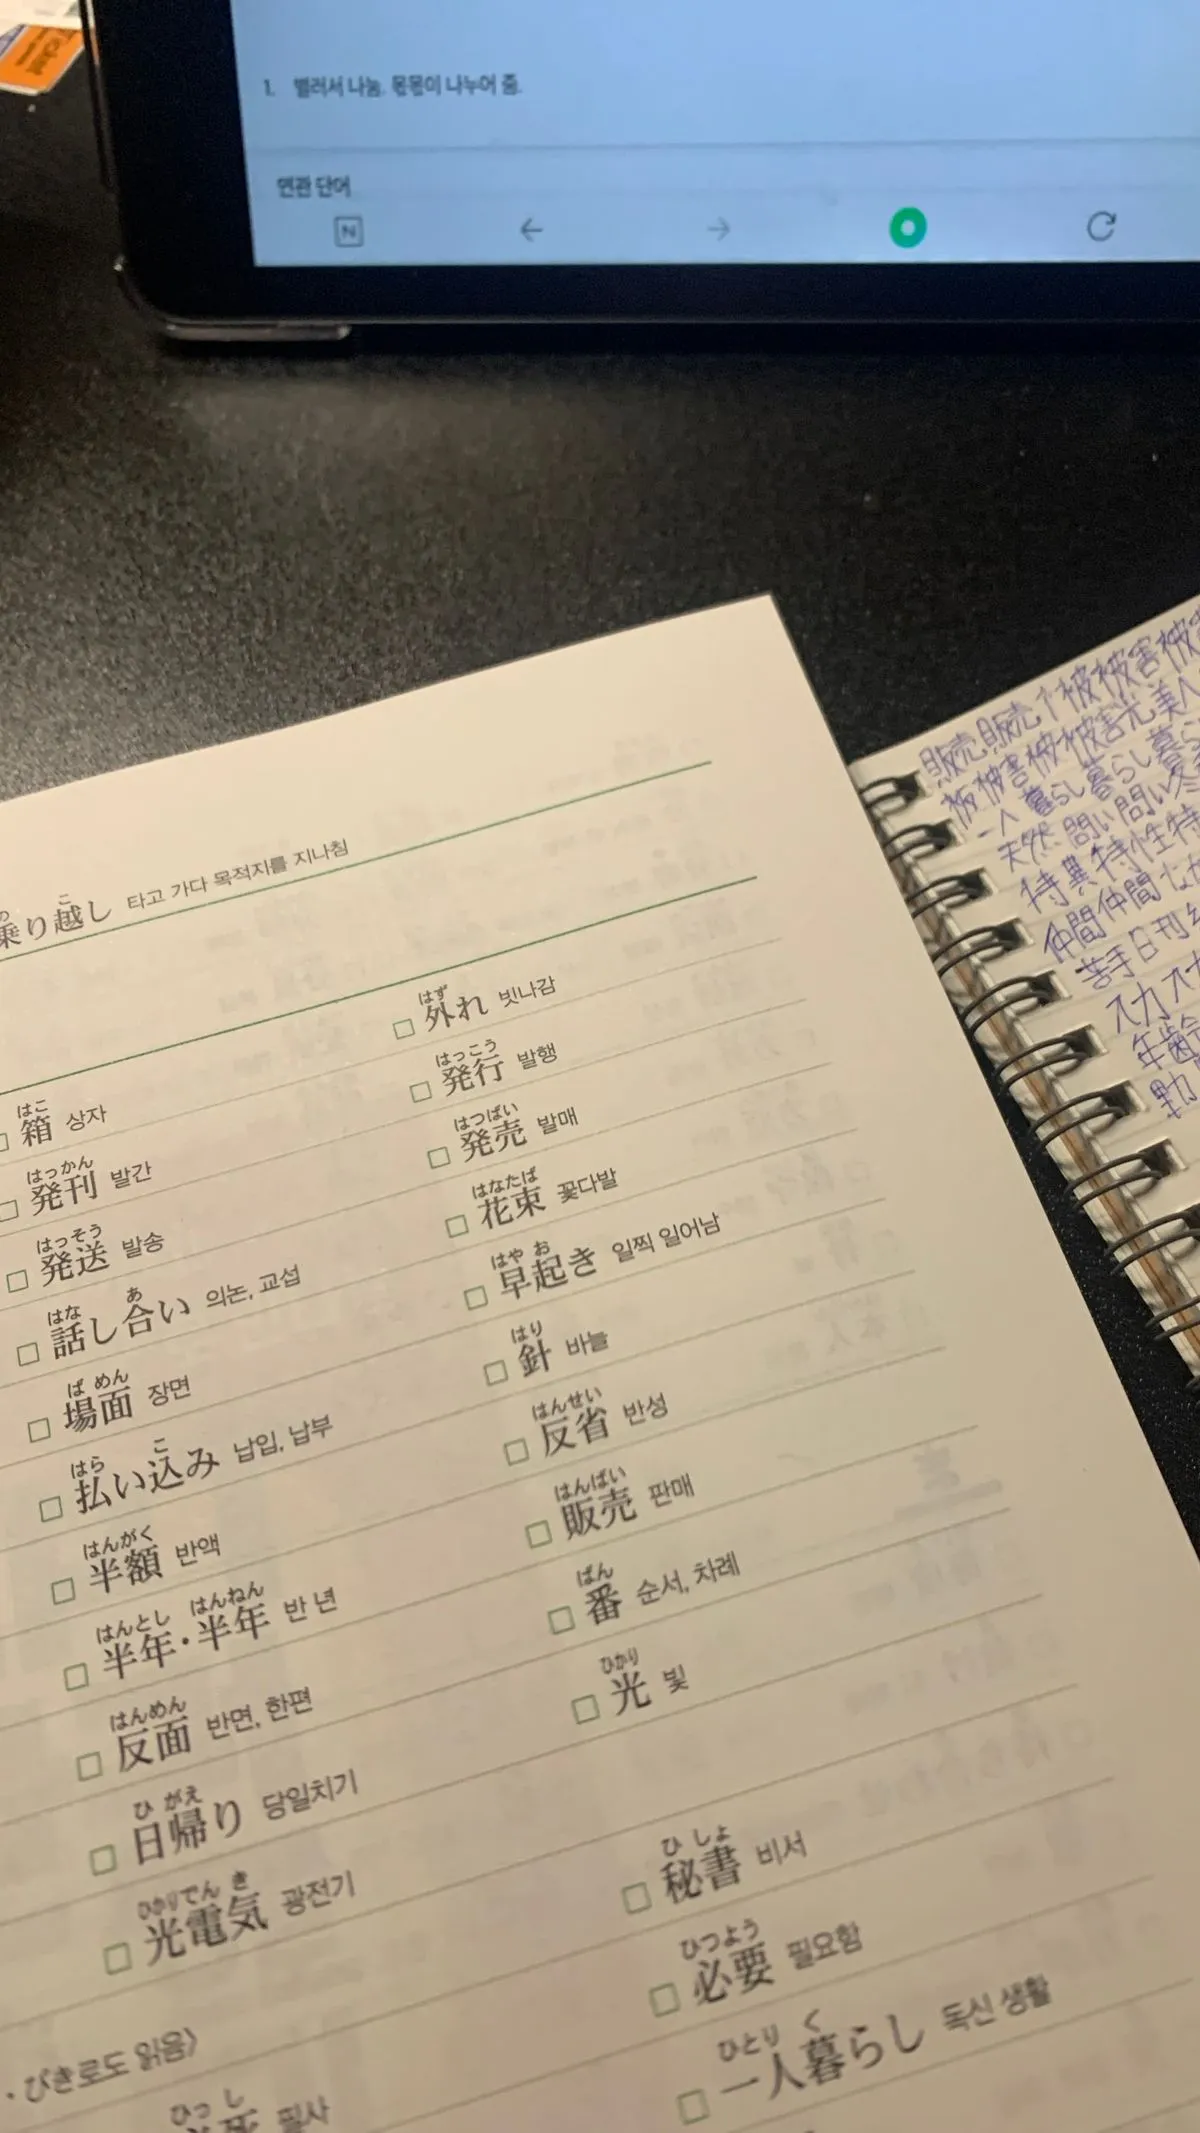 1. 별러서 나눔. 몫몫이 나누어 줌.
연관 단어
N
の こ
乗り越し 타고 가다 목적지를 지나침
はず
□ 外れ 빗나감
はこ
□ 箱 상자
はっこう
□ 発行 발행
はっかん
□ 発刊 발간
はつばい
□ 発売 발매
はっそう
□ 発送 발송
はなたば
□ 花束 꽃다발
はな あ
□ 話し合い 의논, 교섭
はや お
□ 早起き 일찍 일어남
ば めん
□ 場面 장면
はり
□ 針 바늘
はら こ
□ 払い込み 납입, 납부
はんせい
□ 反省 반성
はんがく
□ 半額 반액
はんばい
□ 販売 판매
はんとし はんねん
□ 半年・半年 반 년
ばん
□ 番 순서, 차례
はんめん
□ 反面 반면, 한편
ひかり
□ 光 빛
ひ がえ
□ 日帰り 당일치기
ひかりでん き
□ 光電気 광전기
ひ しょ
□ 秘書 비서
ひつよう
□ 必要 필요함
・びき로도 읽음〉
ひとり く
□ 一人暮らし 독신 생활
ひっ し
必死 필사
販売販売 被被害被
被被害被被害光美人
一人暮らし暮らし暮ら
天然 問い問い冬
特異特性特
仲間仲間なか
苦手日刊
入力入力
年齢